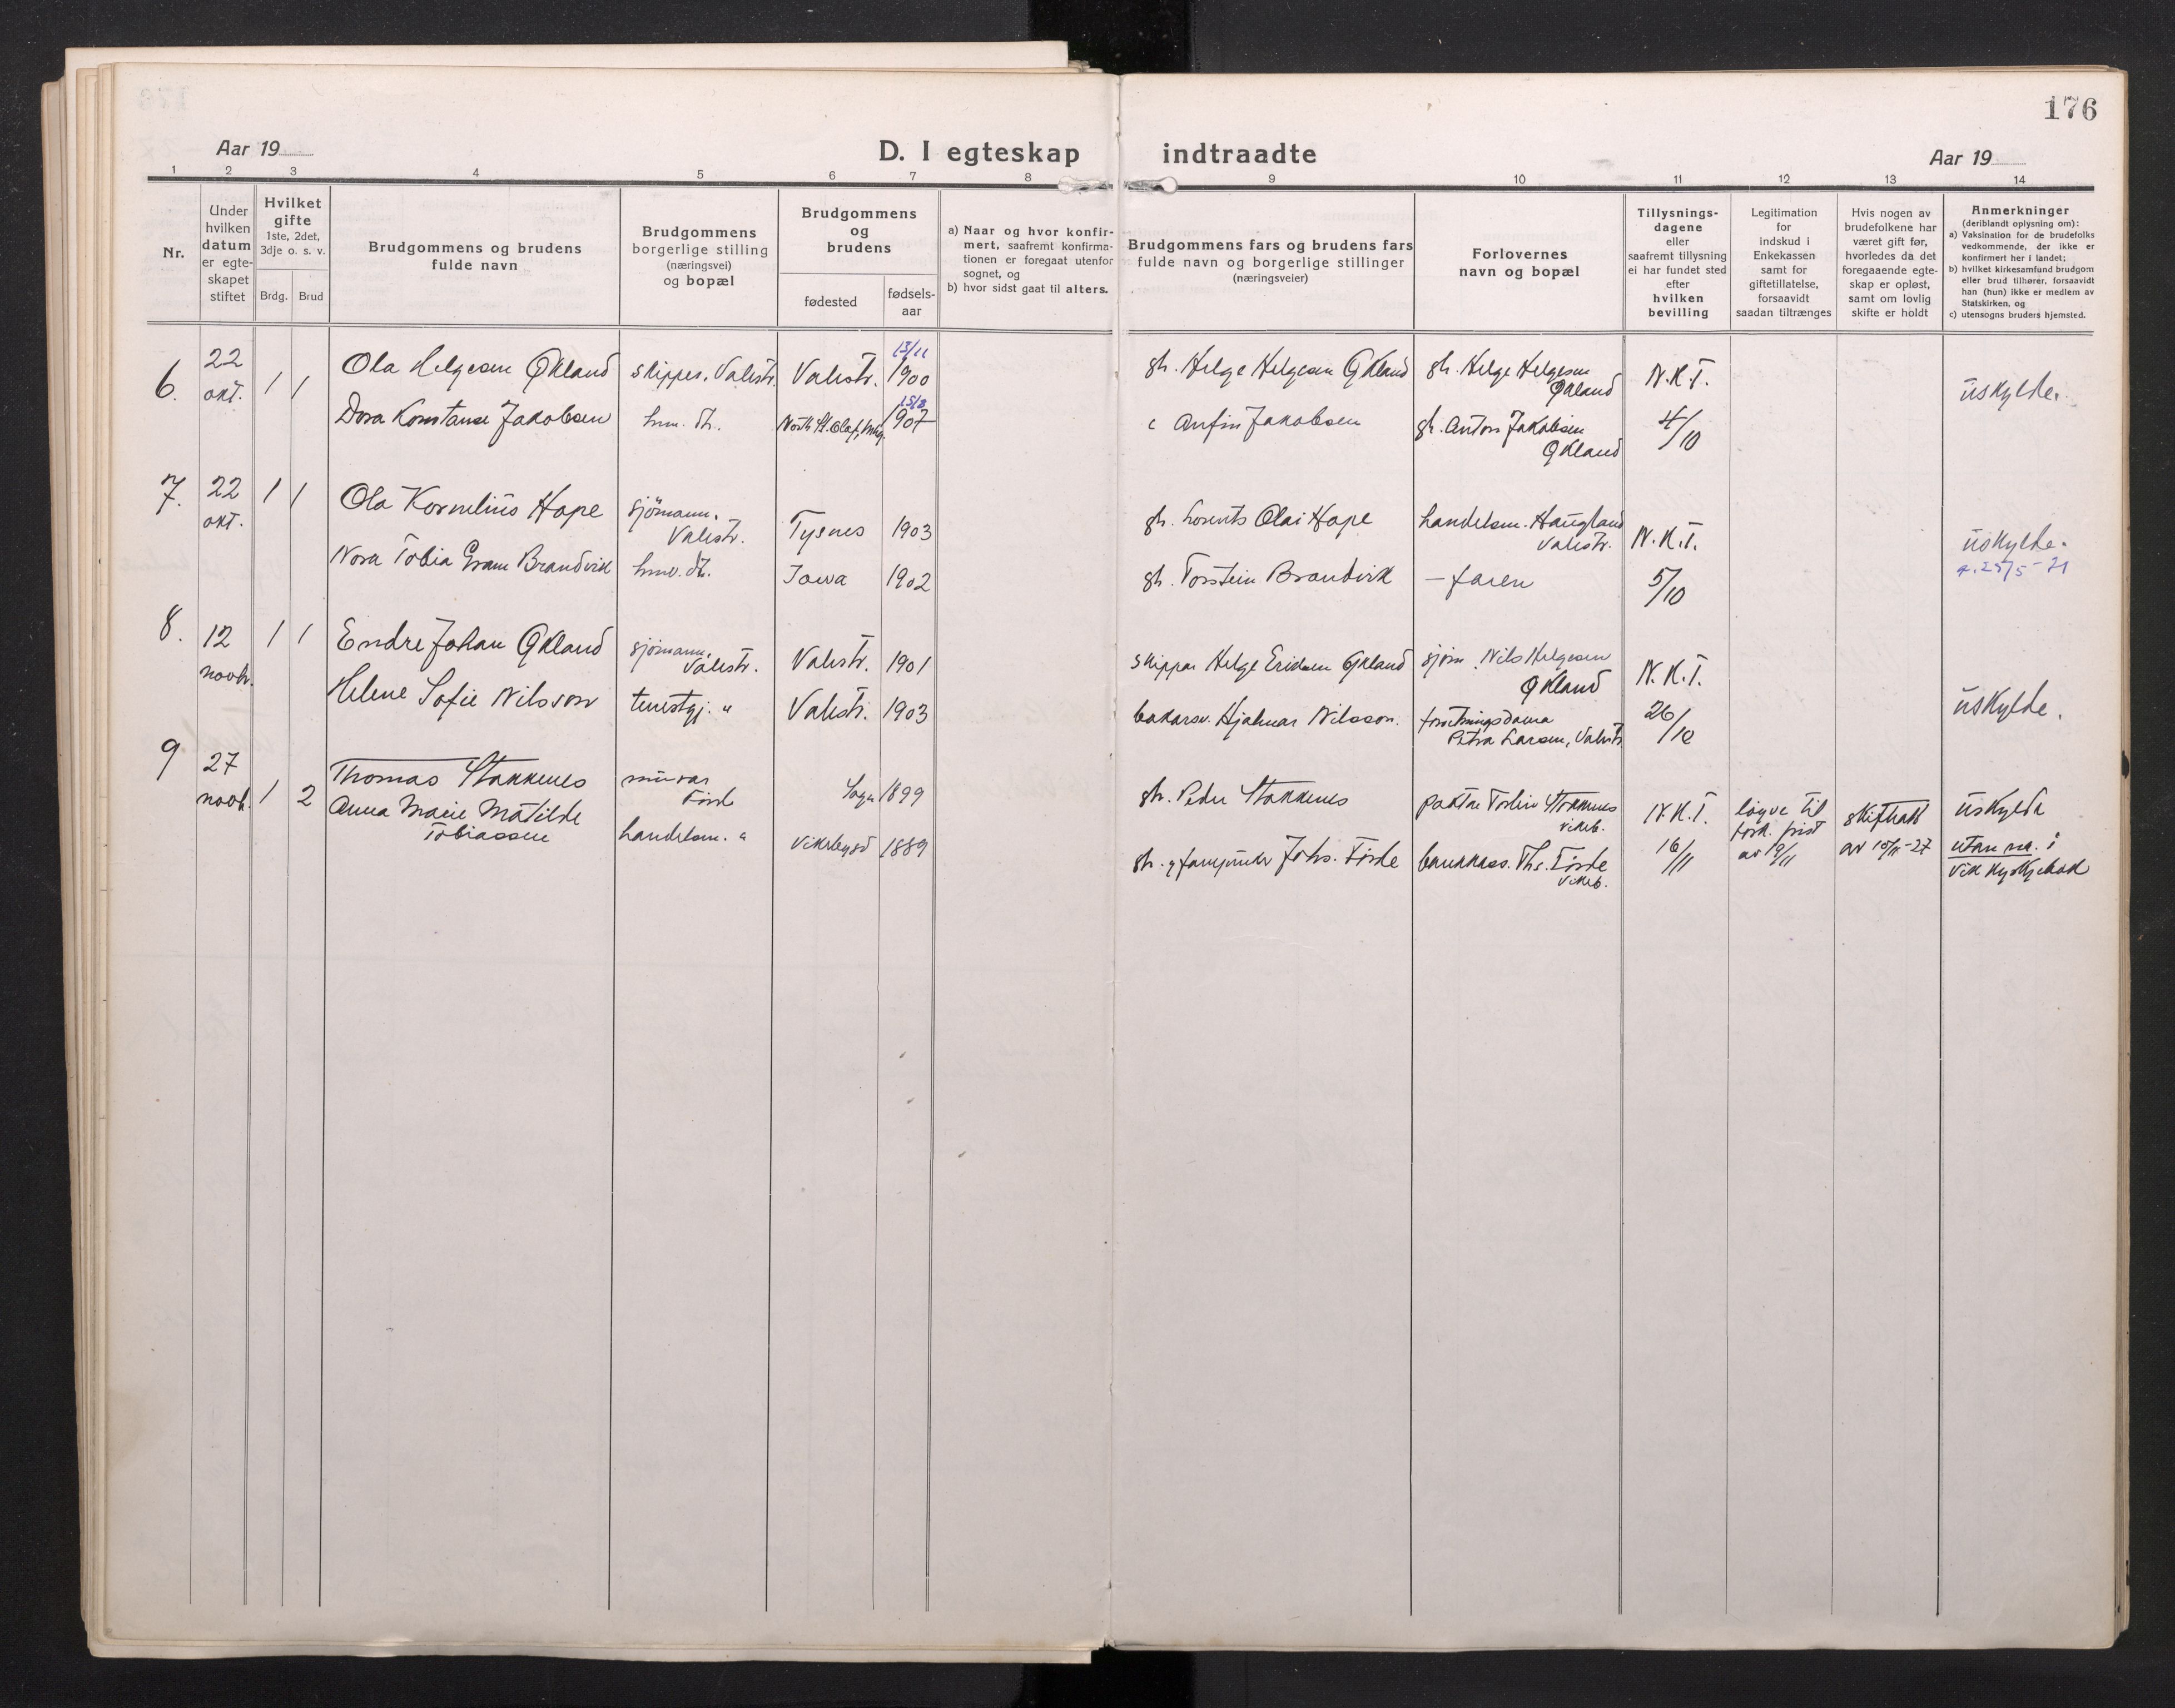 176
Aar 19
D. I egteskap indtraadte
Aar 19
1 2 3 4 5 6 7 8 9 10 11 12 13 14
Nr.
Under
hvilken
datum
er egte-
skapet
stiftet
Hvilket
gifte
1ste, 2det,
3dje o. s. v.
Brdg. Brud
Brudgommens og brudens
fulde navn
Brudgommens
borgerlige stilling
(næringsvei)
og bopæl
Brudgommens
og
brudens
fødested
fødsels-
aar
a) Naar og hvor konfir-
mert, saafremt konfirma-
tionen er foregaat utenfor
sognet, og
b) hvor sidst gaat til alters.
Brudgommens fars og brudens fars
fulde navn og borgerlige stillinger
(næringsveier)
Forlovernes
navn og bopæl
Tillysnings-
dagene
eller
saafremt tillysning
ei har fundet sted
efter
hvilken
bevilling
Legitimation
for
indskud i
Enkekassen
samt for
giftetillatelse,
forsaavidt
saadan tiltrænges
Hvis nogen av
brudefolkene har
været gift før,
hvorledes da det
foregaaende egte-
skap er opløst,
samt om lovlig
skifte er holdt
Anmerkninger
(deriblandt oplysning om):
a) Vaksination for de brudefolks
vedkommende, der ikke er
konfirmert her i landet;
b) hvilket kirkesamfund brudgom
eller brud tilhører, forsaavidt
han (hun) ikke er medlem av
Statskirken, og
c) utensogns bruders hjemsted.
6. 22 okt. 1 1
Ola Helgesen Økland skipper, Valestr. Valestr. 13/11 1900
gbr. Helge Helgesen Økland gbr. Helge Helgesen Økland N.K.T. üskylde.
Dora Konstanse Jakobsen hmv. dt. North St. Olaf, 1907
Anfin Jakobsen gbr. Anton Jakobsen Økland 4/10
7. 22 okt. 1 1
Ola Kornelius Hope sjömann. Valestr. Tysnes 1903
gbr. Lorents Olai Hope handelsm. Haugland Valestr. N.K.T. üskylde.
Nora Tobia Gram Brandvik hmv. dt. Iowa 1902
gbr. Torstein Brandvik – faren 5/10
8. 12 novbr. 1 1
Endre Johan Økland sjömann. Valestr. Valestr. 1901
skipper Helge Eriksen Økland sjöm. Nils Helgesen Økland N.K.T.
Helene Sofie Nilsson tenestgj. " Valestr. 1903
bakarsv. Hjalmar Nilsson. forretningsdama Petra Larsen, Valestr. 26/10 üskylde.
9 27 novb. 1 2
Thomas Stakkenes mürar Förde Sogn 1899
gbr. Peder Stakkenes Stokkenes Vikeb. N.K.T. löyve til fork. frist av 19/11 skifteatt av 15/11-27 üskylda
Anna Marie Matilde
Tobiassen handelsm. " Vikebygd 1889
Johs. Förde bankkass. Ths. Förde Vikeb. 16/11 utan na. i
Vik kyrkjebok